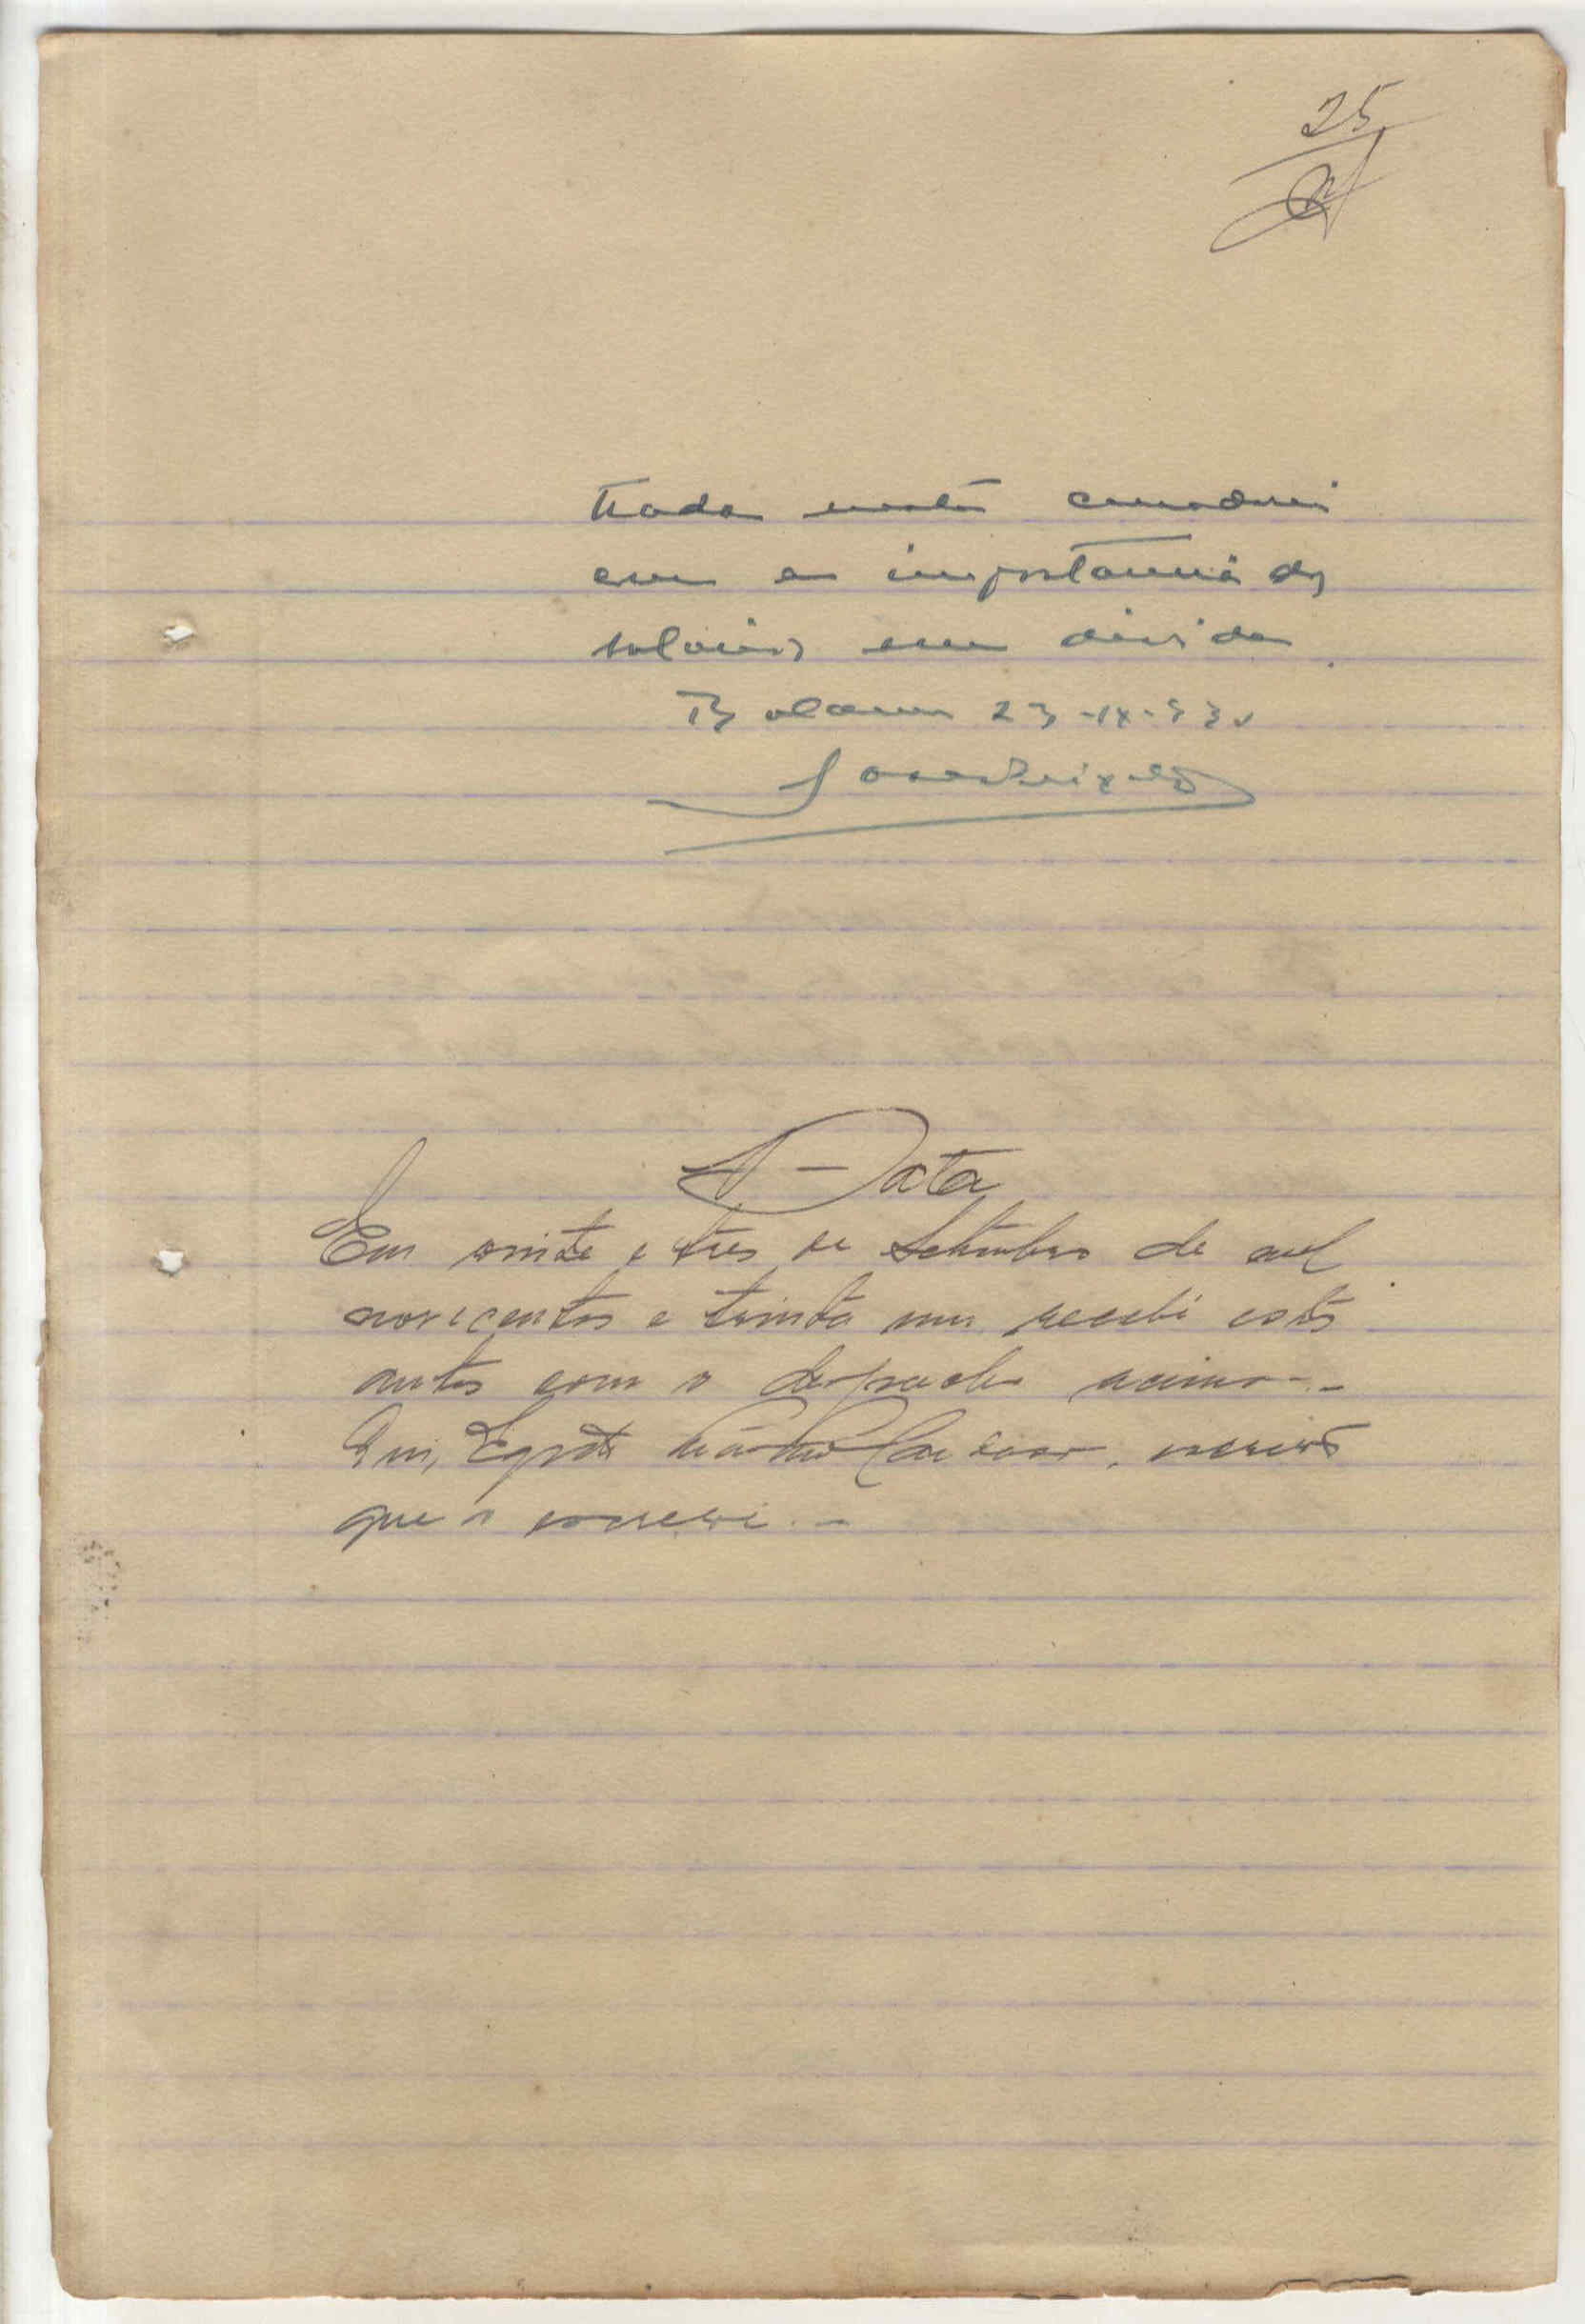 25
com a importancia dos
salarios em divida.
23-IX-93
Data
Em vinte e tres de Setembro de mil
novecentos e trinta um recebi estes
autos com o despacho acima. -
Eu, Cardoso, escrivão
que o escrevi. -